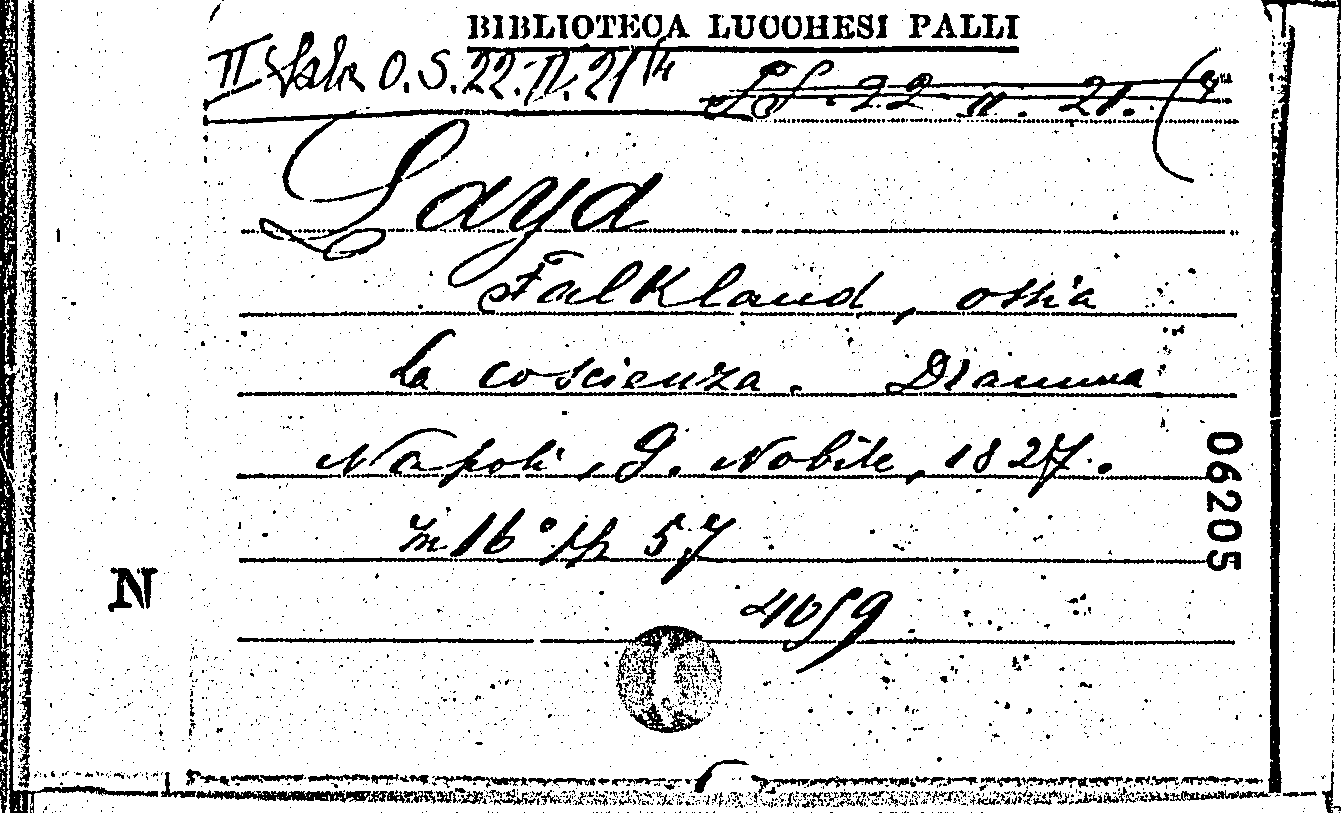 BIBLIOTECA LUCCHESI PALLI
II Sala O.S. 22. II. 21/4
22 II. 21. (4
Laya
Falkland, ossia
la coscienza. Dramma
Napoli, G. Nobile, 1827.
In 16° pp 57
4059
N
06205